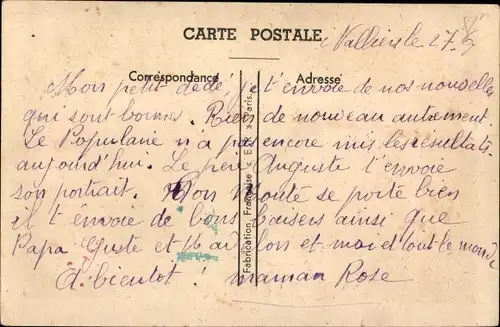 CARTE POSTALE
Valliers le 27
Correspondance Adresse
Mon petit dédé, je t'envoie de nos nouvelles
qui sont bonnes. Rien de nouveau autrement.
Le Populaire n'a pas encore mis les résultats
aujourd'hui. Le père Auguste t'envoie
son portrait. Mon se porte bien
il t'envoie de bons baisers ainsi que
Papa Guste et et moi et tout le monde
A bientot ! maman Rose
Fabrication Française « E. R. » Paris.